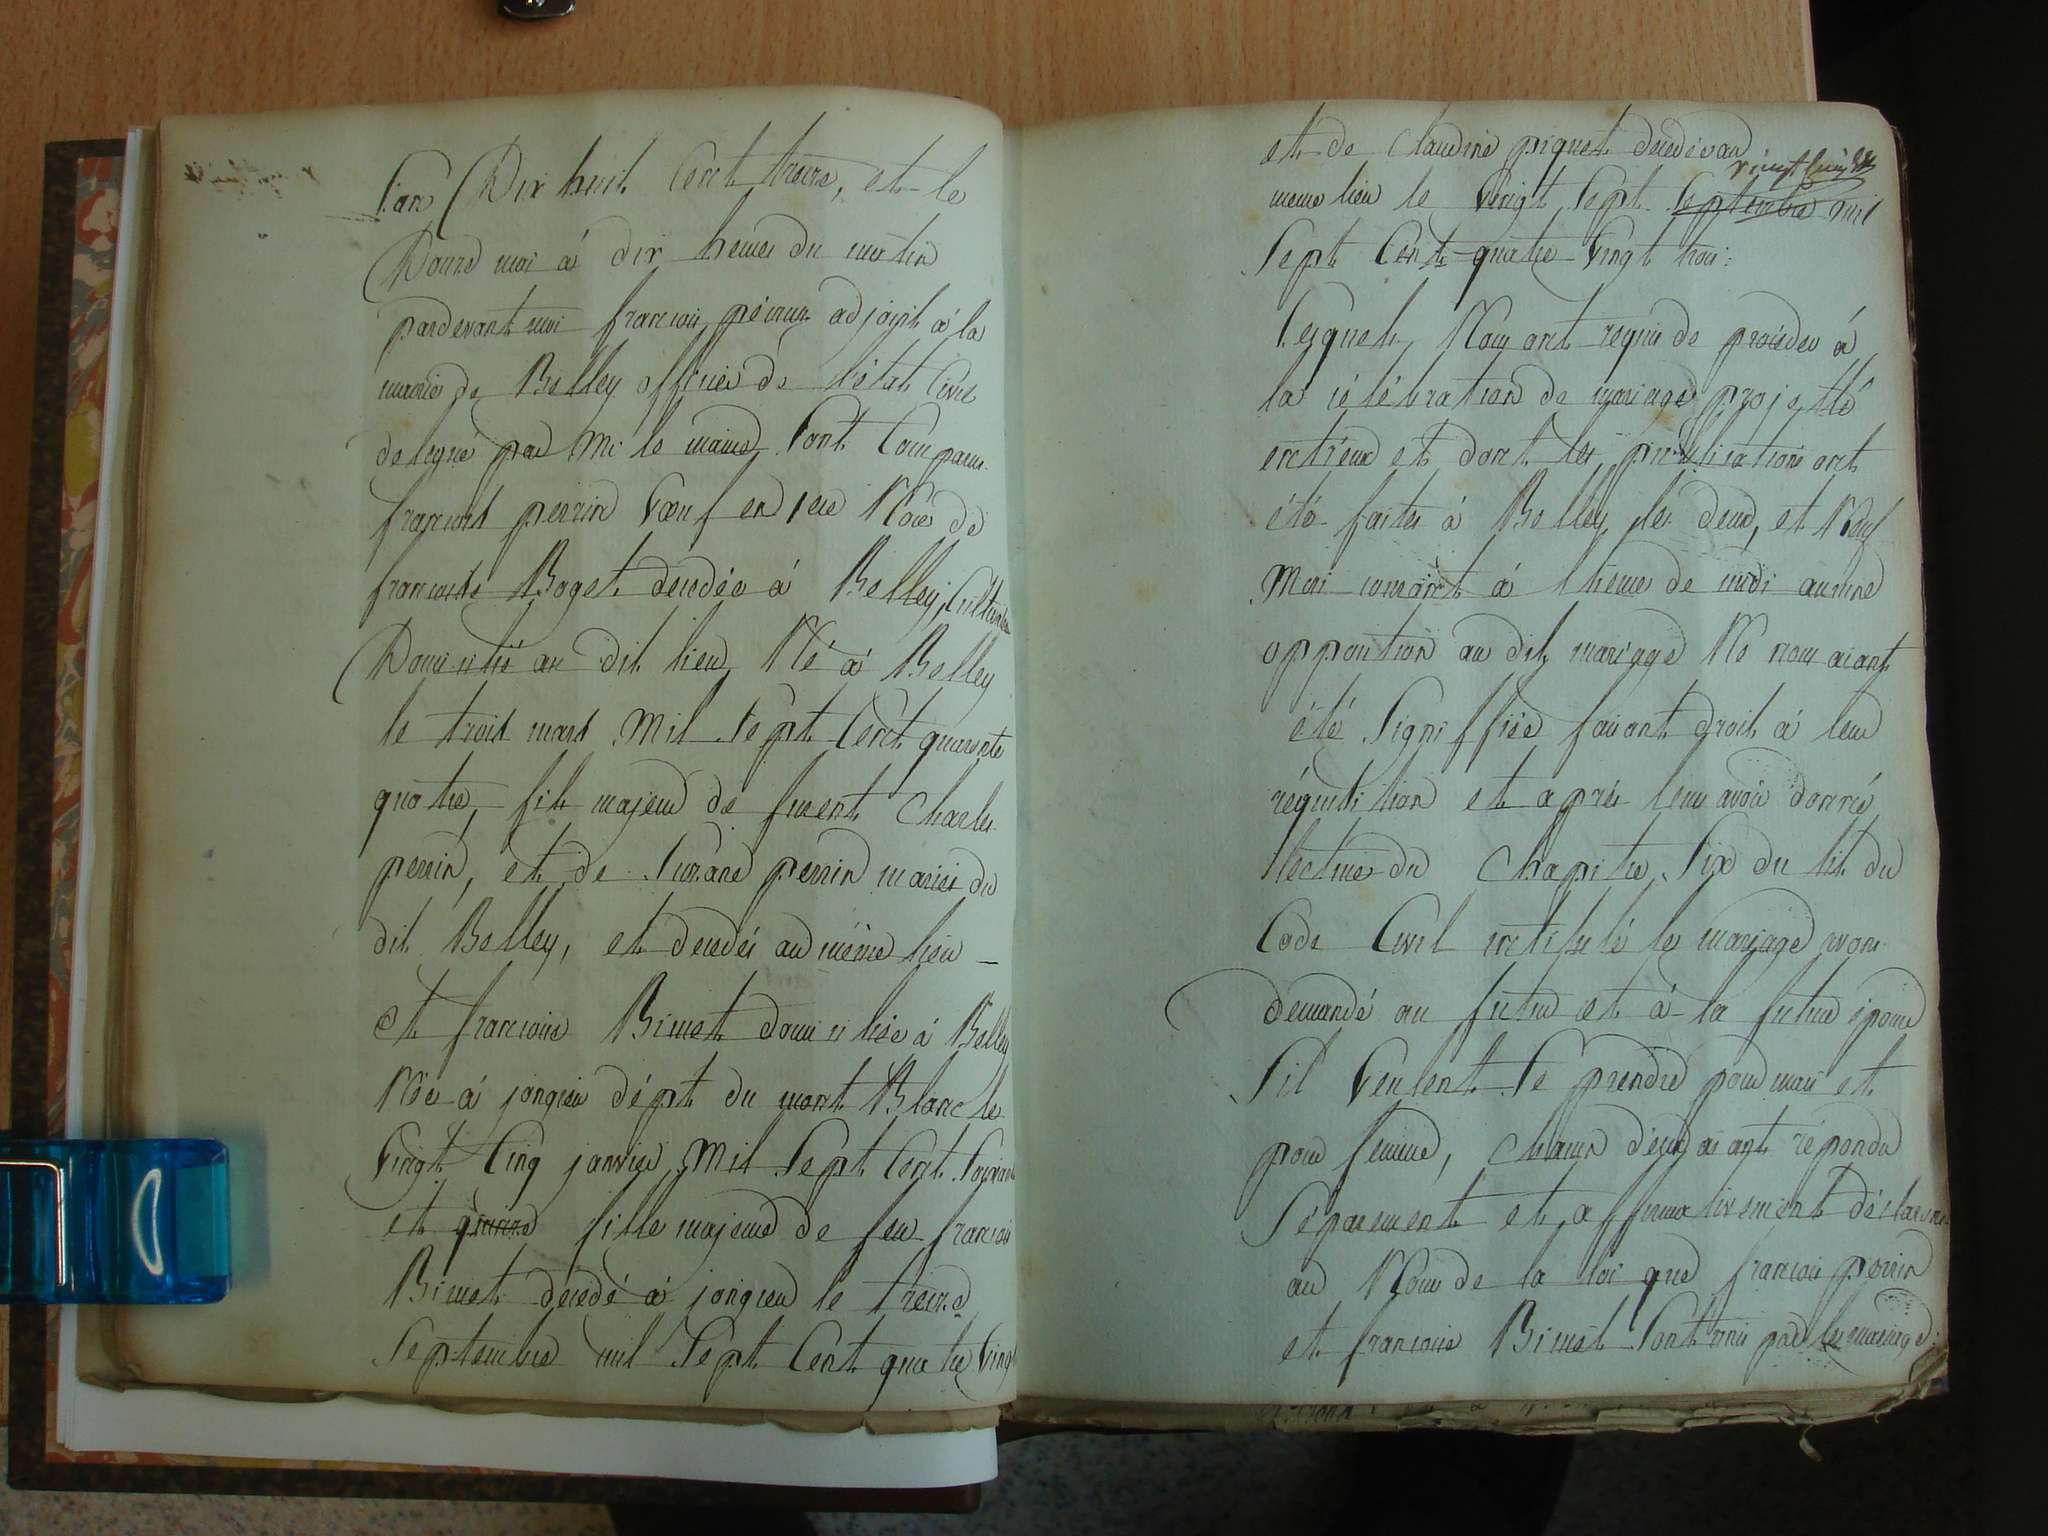 l'an Dix huit Cent treize, et le
Douze mai à dix heures du matin
pardevant moi francois adjoint à la
mairie de Belley officier de l'état Civil
delegué par Mr le maire Sont Comparus
francois perrin Vœuf en 1ere Noce de
francoise Boget decedée à Belley, Cultivateur
Domicilié au dit lieu, Né à Belley
le trois mars Mil Sept Cent quarante
quatre, fils majeur de furent Charles
perrin, et de Suzane perrin mariés du
dit Belley, et decedés au même lieu
et francoise Bimet domiciliée à Belley
Née à jongieu dépt du mont Blanc le
Vingt Cinq janvier Mil Sept Cent Soixante
et quinze fille majeure de feu francois
Bimet decedé à jongieu le treize
Septembre mil Sept Cent quatre Vingt
et de Claudine piquet decedée au
même lieu le Vingt Sept Septembre mil
Sept Cent quatre Vingt trois.
Lesquels Nous ont requis de procéder à
la célébration de mariage projetté
entreux et dont les publications ont
été faites à Belley les deux, et Neuf
Mai courant à l'heure de midi aucune
opposition au dit mariage Ne nous aiant
été Signiffiée faisant droit à leur
réquisition et après leur avoir donné
lecture du Chapitre Six du tit du
Code Civil intitulé le mariage avons
demandé au futur et à la future épouse
S'il Veulent Se prendre pour mari et
pour femme, chacun d'eux aiant répondu
Séparement et affirmativement déclarons
au Nom de la loi que francois perrin
et francoise Bimet Sont unis par le mariage: